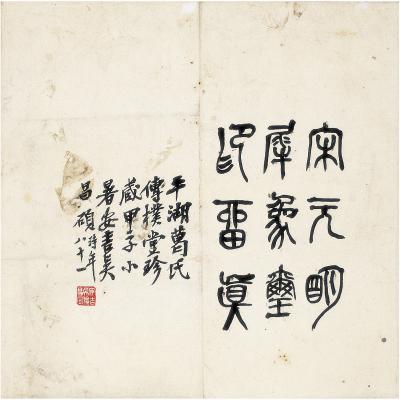 宋元明
犀象璽
印留真
平湖葛氏
傳樸堂珍
藏甲子小
暑安吉吳
昌碩時年
八十一